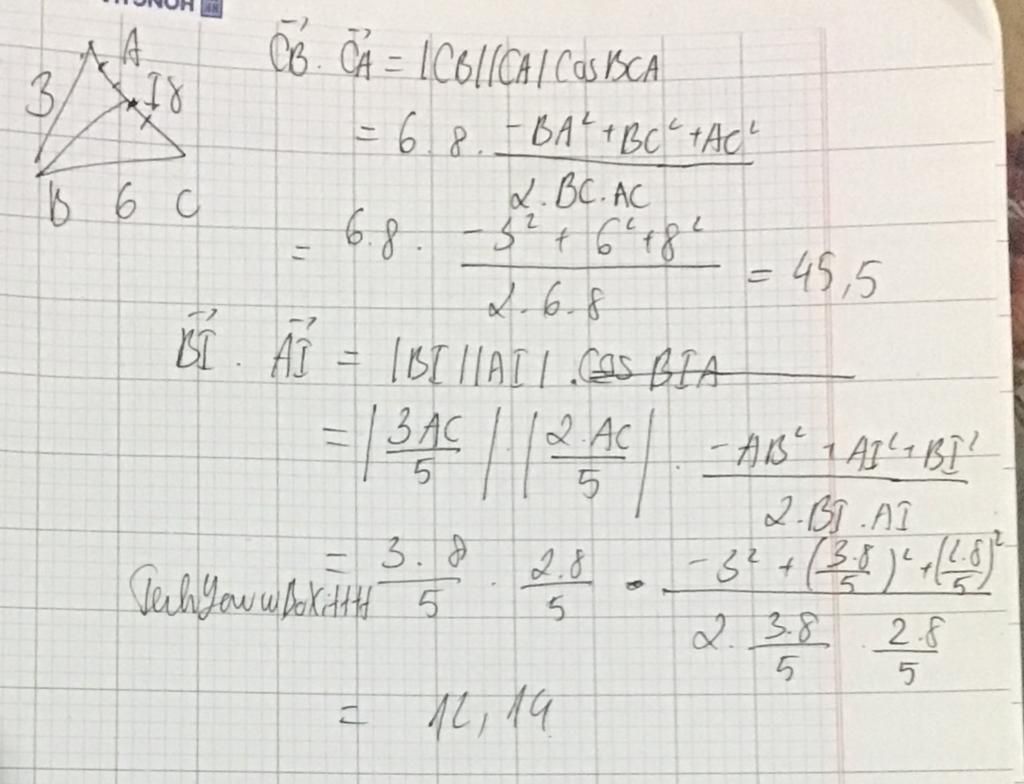 A
3
I 8
B 6 C
CB→ . CA→ = |CB||CA| Cos BCA
= 6 . 8 . (-BA² + BC² + AC²) / (2.BC.AC)
= 6.8 . (-3² + 6² + 8²) / (2.6.8) = 45,5
BI→ . AI→ = |BI||AI| . Cos BIA
= |3AC/5| |2.AC/5| . (-AB² + AI² + BI²) / (2.BI.AI)
= 3.8/5 . 2.8/5 . (-3² + (3.8/5)² + (2.8/5)²) / (2 . 3.8/5 . 2.8/5)
= 12,14